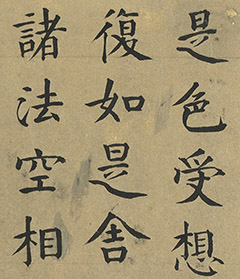 是色受想
復如是舎
諸法空相